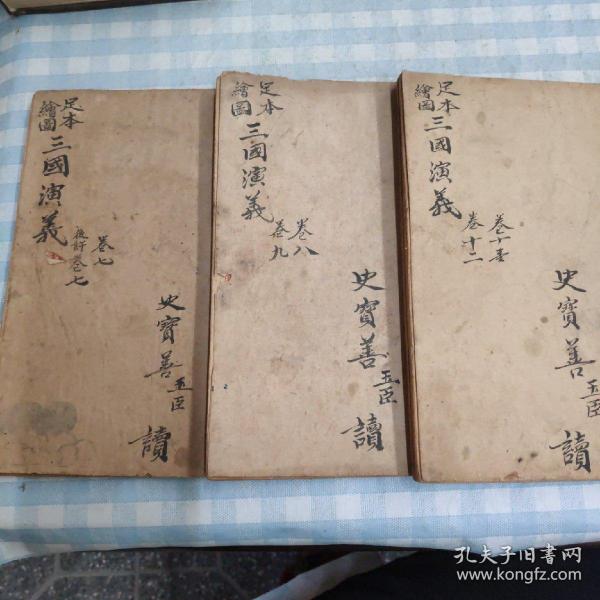 足本
繪圖
三國演義
卷七
後許卷七
史寶善玉臣
讀
足本
繪圖
三國演義
卷八
卷九
史寶善玉臣
讀
足本
繪圖
三國演義
卷十一
卷十二
史寶善玉臣
讀
孔夫子旧書网
www.kongfz.com